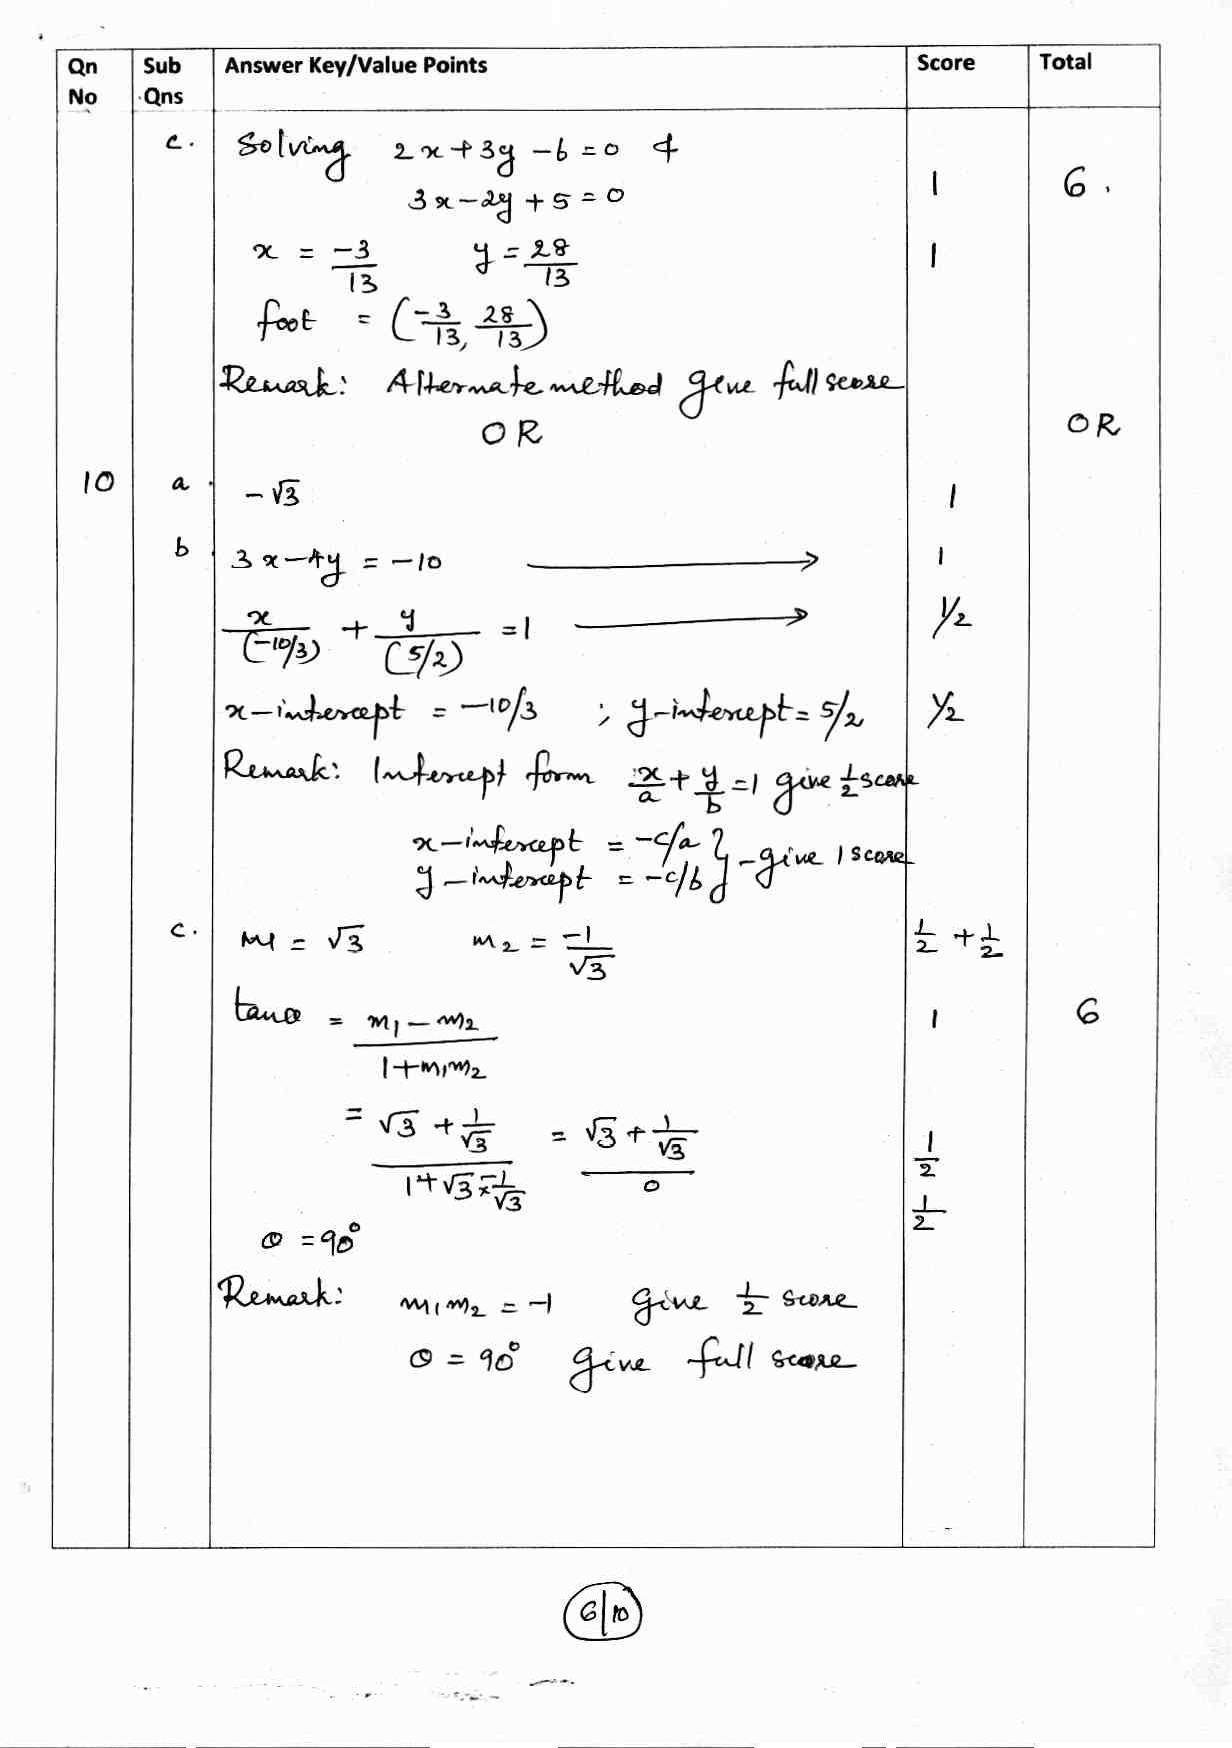 Qn No | Sub Qns | Answer Key/Value Points | Score | Total
c. Solving 2x + 3y - 6 = 0 & | 1 | 6.
3x - 2y + 5 = 0
x = -3/13 y = 28/13 | 1
foot = (-3/13, 28/13)
Remark: Alternate method give full score
OR | OR
10 a. -√3 | 1
b. 3x - 4y = -10 → 1
x/(-10/3) + y/(5/2) = 1 → 1/2
x-intercept = -10/3 ; y-intercept = 5/2 | 1/2
Remark: Intercept form x/a + y/b = 1 give 1/2 score
x-intercept = -c/a } - give 1 score
y-intercept = -c/b
c. m1 = √3 m2 = -1/√3 | 1/2 + 1/2
tanθ = (m1 - m2)/(1 + m1m2) | 1 | 6
= (√3 + 1/√3)/(1 + √3 × -1/√3) = (√3 + 1/√3)/0 | 1/2
θ = 90° | 1/2
Remark: m1m2 = -1 give 1/2 score
θ = 90° give full score
6/10